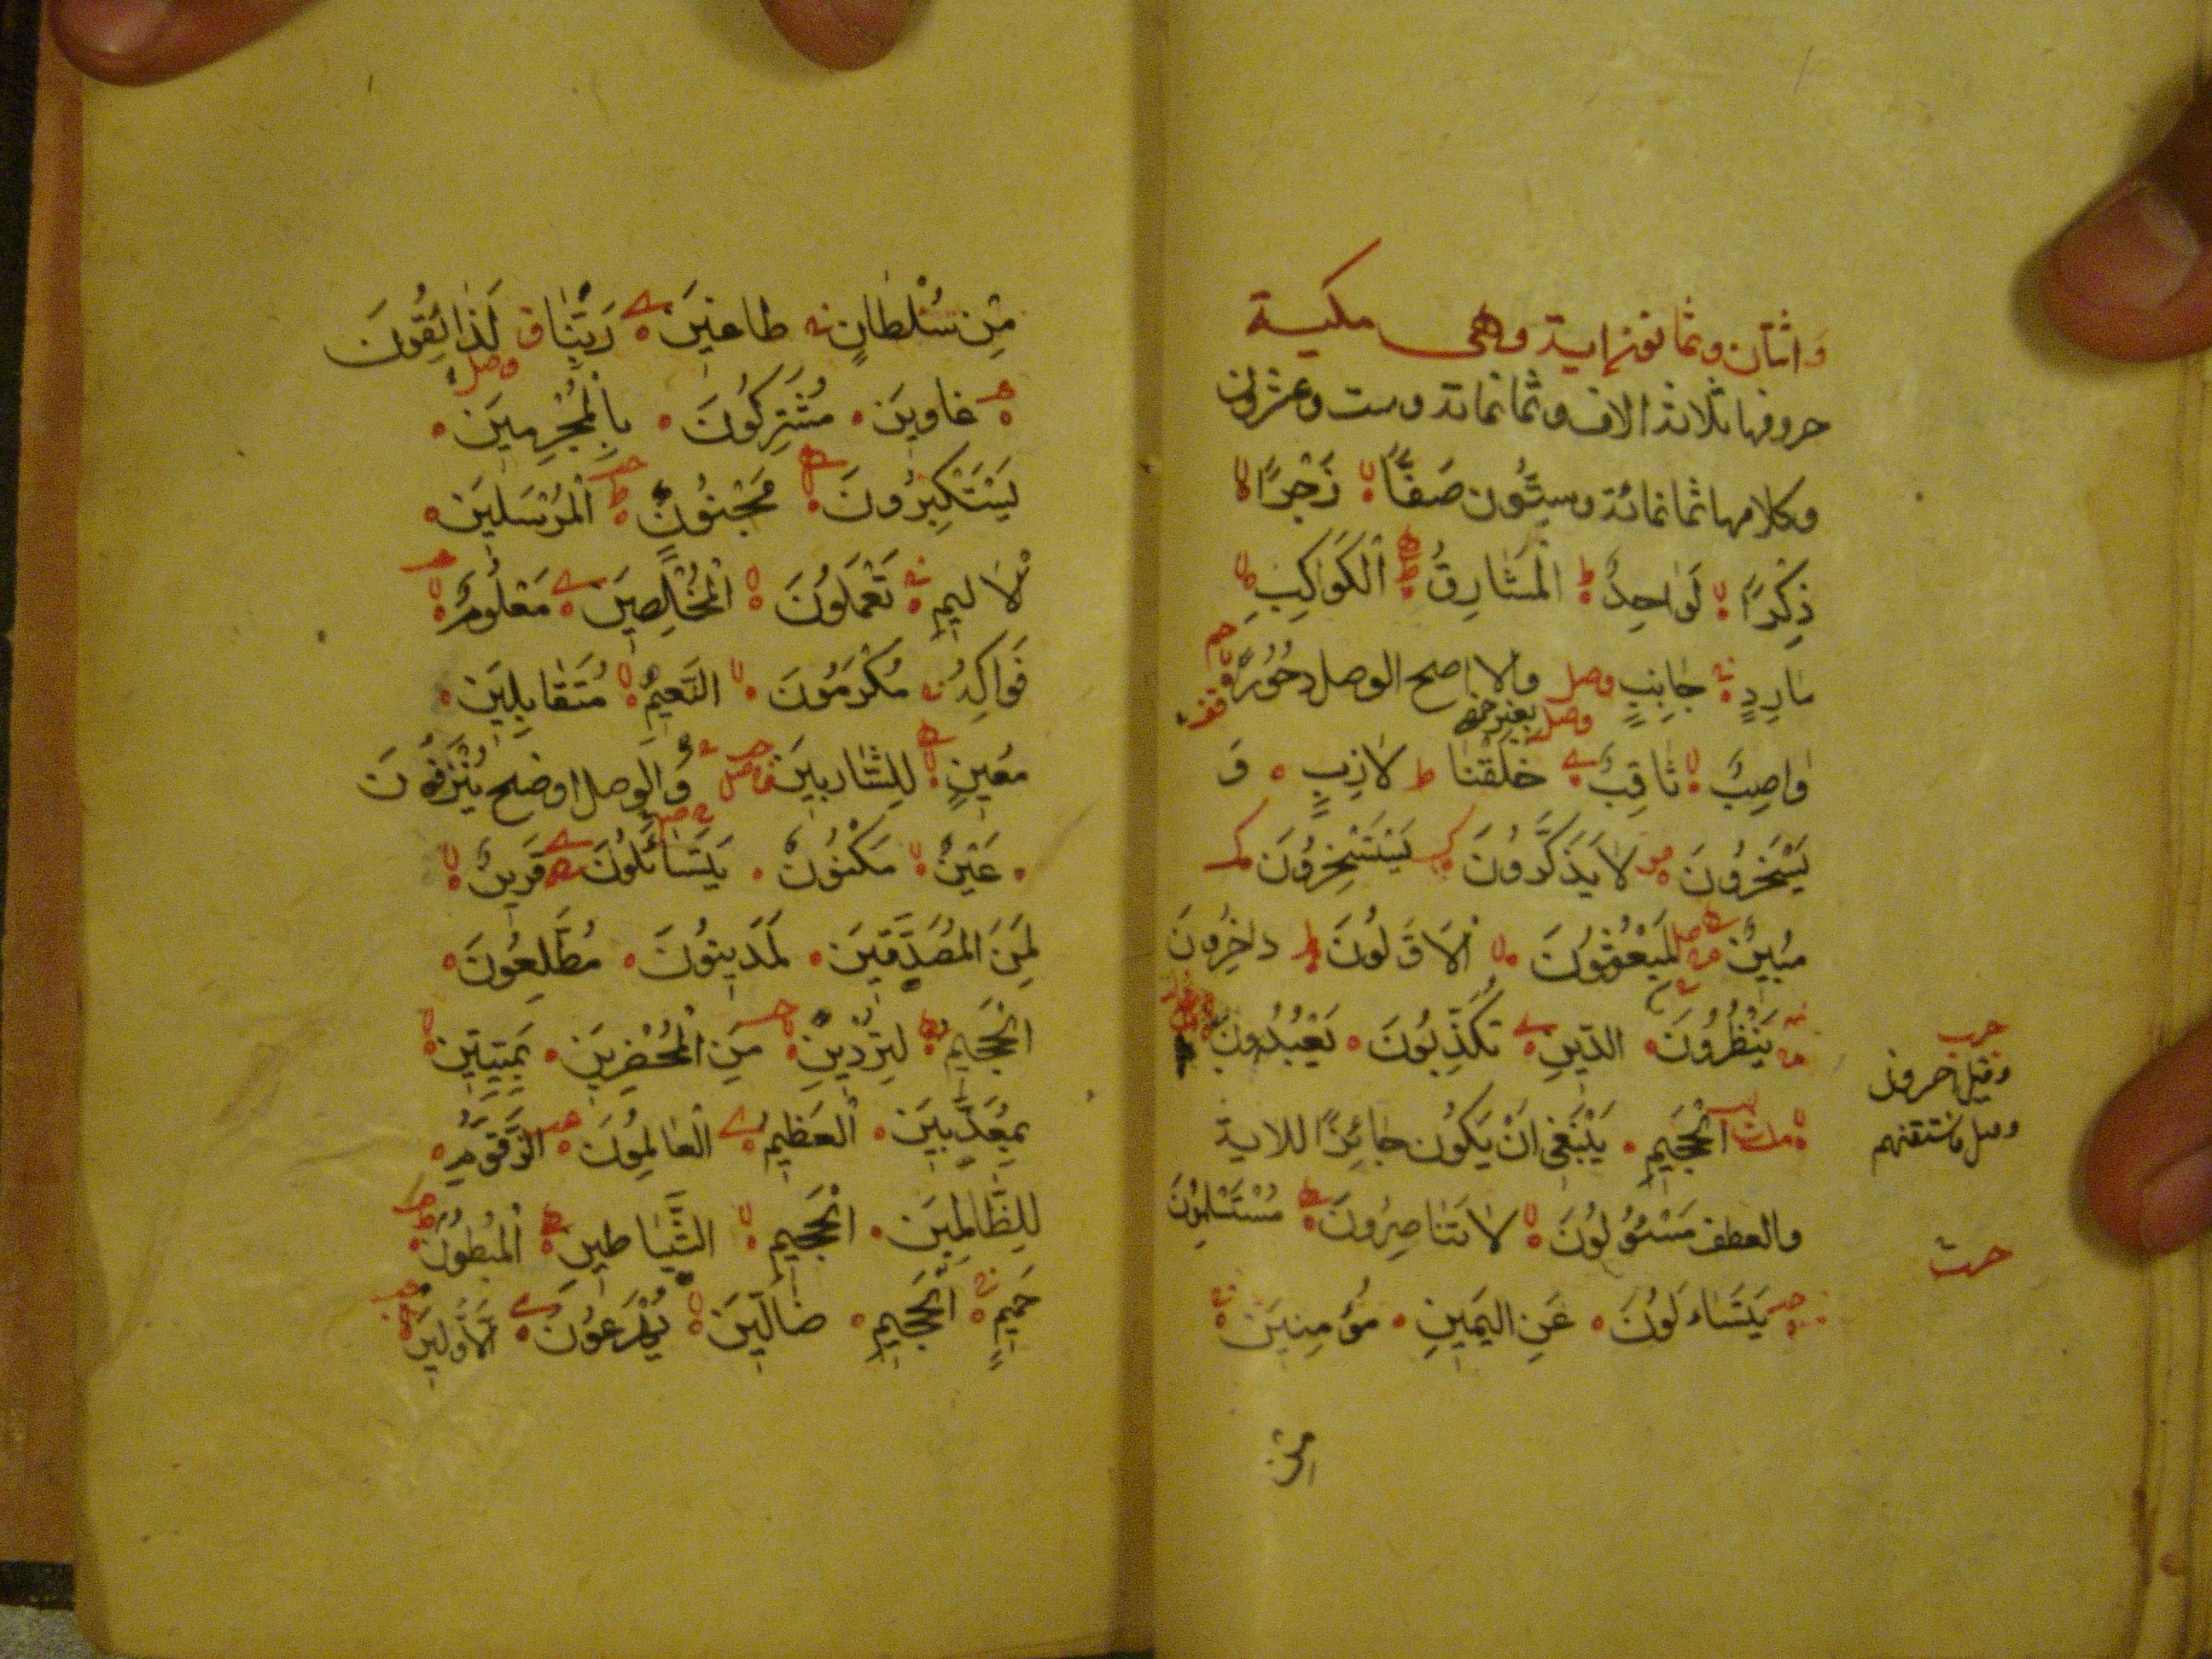 واثنان وثمانون اية وهى مكية
حروفها ثلاثة الاف وثمانمائة وست وعشرون
وكلامها ثمانمائة وستون صَفًّا لا زَجْرًا لا
ذِكْرًا لا لَوَاحِدٌ ط الْمَشَارِقُ ط اَلْكَوَاكِبِ لا
مَارِدٍ جَانِبٍ وصل والا صح الوصل دُحُورًا
وصل بغير
وَاصِبٌ لا ثَاقِبٌ خَلَقْنَا ط لَازِبٍ وَ
يَسْخَرُونَ لَا يَذَكَّرُونَ يَسْتَسْخِرُونَ
مُبِينٌ لَمَبْعُوثُونَ لا اَلْاَوَّلُونَ ط دَاخِرُونَ
يَنْظُرُونَ الدِّينِ تُكَذِّبُونَ يَعْبُدُونَ
الْجَحِيمِ يَنْبَغِى اَنْ يَكُونَ جَائِزًا للاية
والعطف مَسْئُولُونَ لا لَا تَنَاصَرُونَ مُسْتَسْلِمُونَ
يَتَسَاءَلُونَ عَنِ الْيَمِينِ مُؤْمِنِينَ
من
حرب
وقيل
وصل فاستفتهم
مِنْ سُلْطَانٍ طَاغِينَ رَبِّنَا ق لَذَائِقُونَ
وصل
غَاوِينَ مُشْتَرِكُونَ بِالْمُجْرِمِينَ
يَسْتَكْبِرُونَ مَجْنُونٍ ط الْمُرْسَلِينَ
الْاَلِيمِ تَعْمَلُونَ لا الْمُخْلَصِينَ مَعْلُومٌ لا
فَوَاكِهُ مُكْرَمُونَ لا النَّعِيمِ لا مُتَقَابِلِينَ
مَعِينٍ لِلشَّارِبِينَ وَالوصل اوضح يُنْزَفُونَ
عِينٌ لا مَكْنُونٌ يَتَسَائَلُونَ قَرِينٌ لا
لَمِنَ الْمُصَدِّقِينَ لَمَدِينُونَ مُطَّلِعُونَ
الْجَحِيمِ لَتُرْدِينِ مِنَ الْمُحْضَرِينَ بِمَيِّتِينَ لا
بِمُعَذَّبِينَ الْعَظِيمُ الْعَامِلُونَ الزَّقُّومِ
لِلظَّالِمِينَ الْجَحِيمِ لا الشَّيَاطِينِ الْبُطُونَ ط
حَمِيمٍ الْجَحِيمِ ضَالِّينَ لا يُهْرَعُونَ الْاَوَّلِينَ